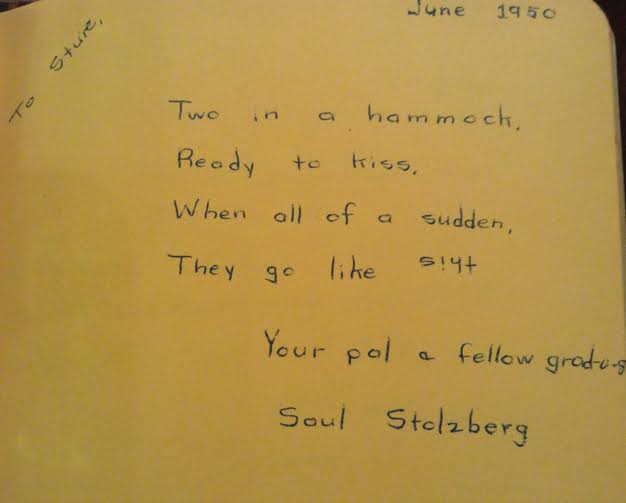 June 1950
To Stuie,
Two in a hammock,
Ready to kiss,
When all of a sudden,
They go like this
Your pal a fellow grad-u-8
Saul Stolzberg